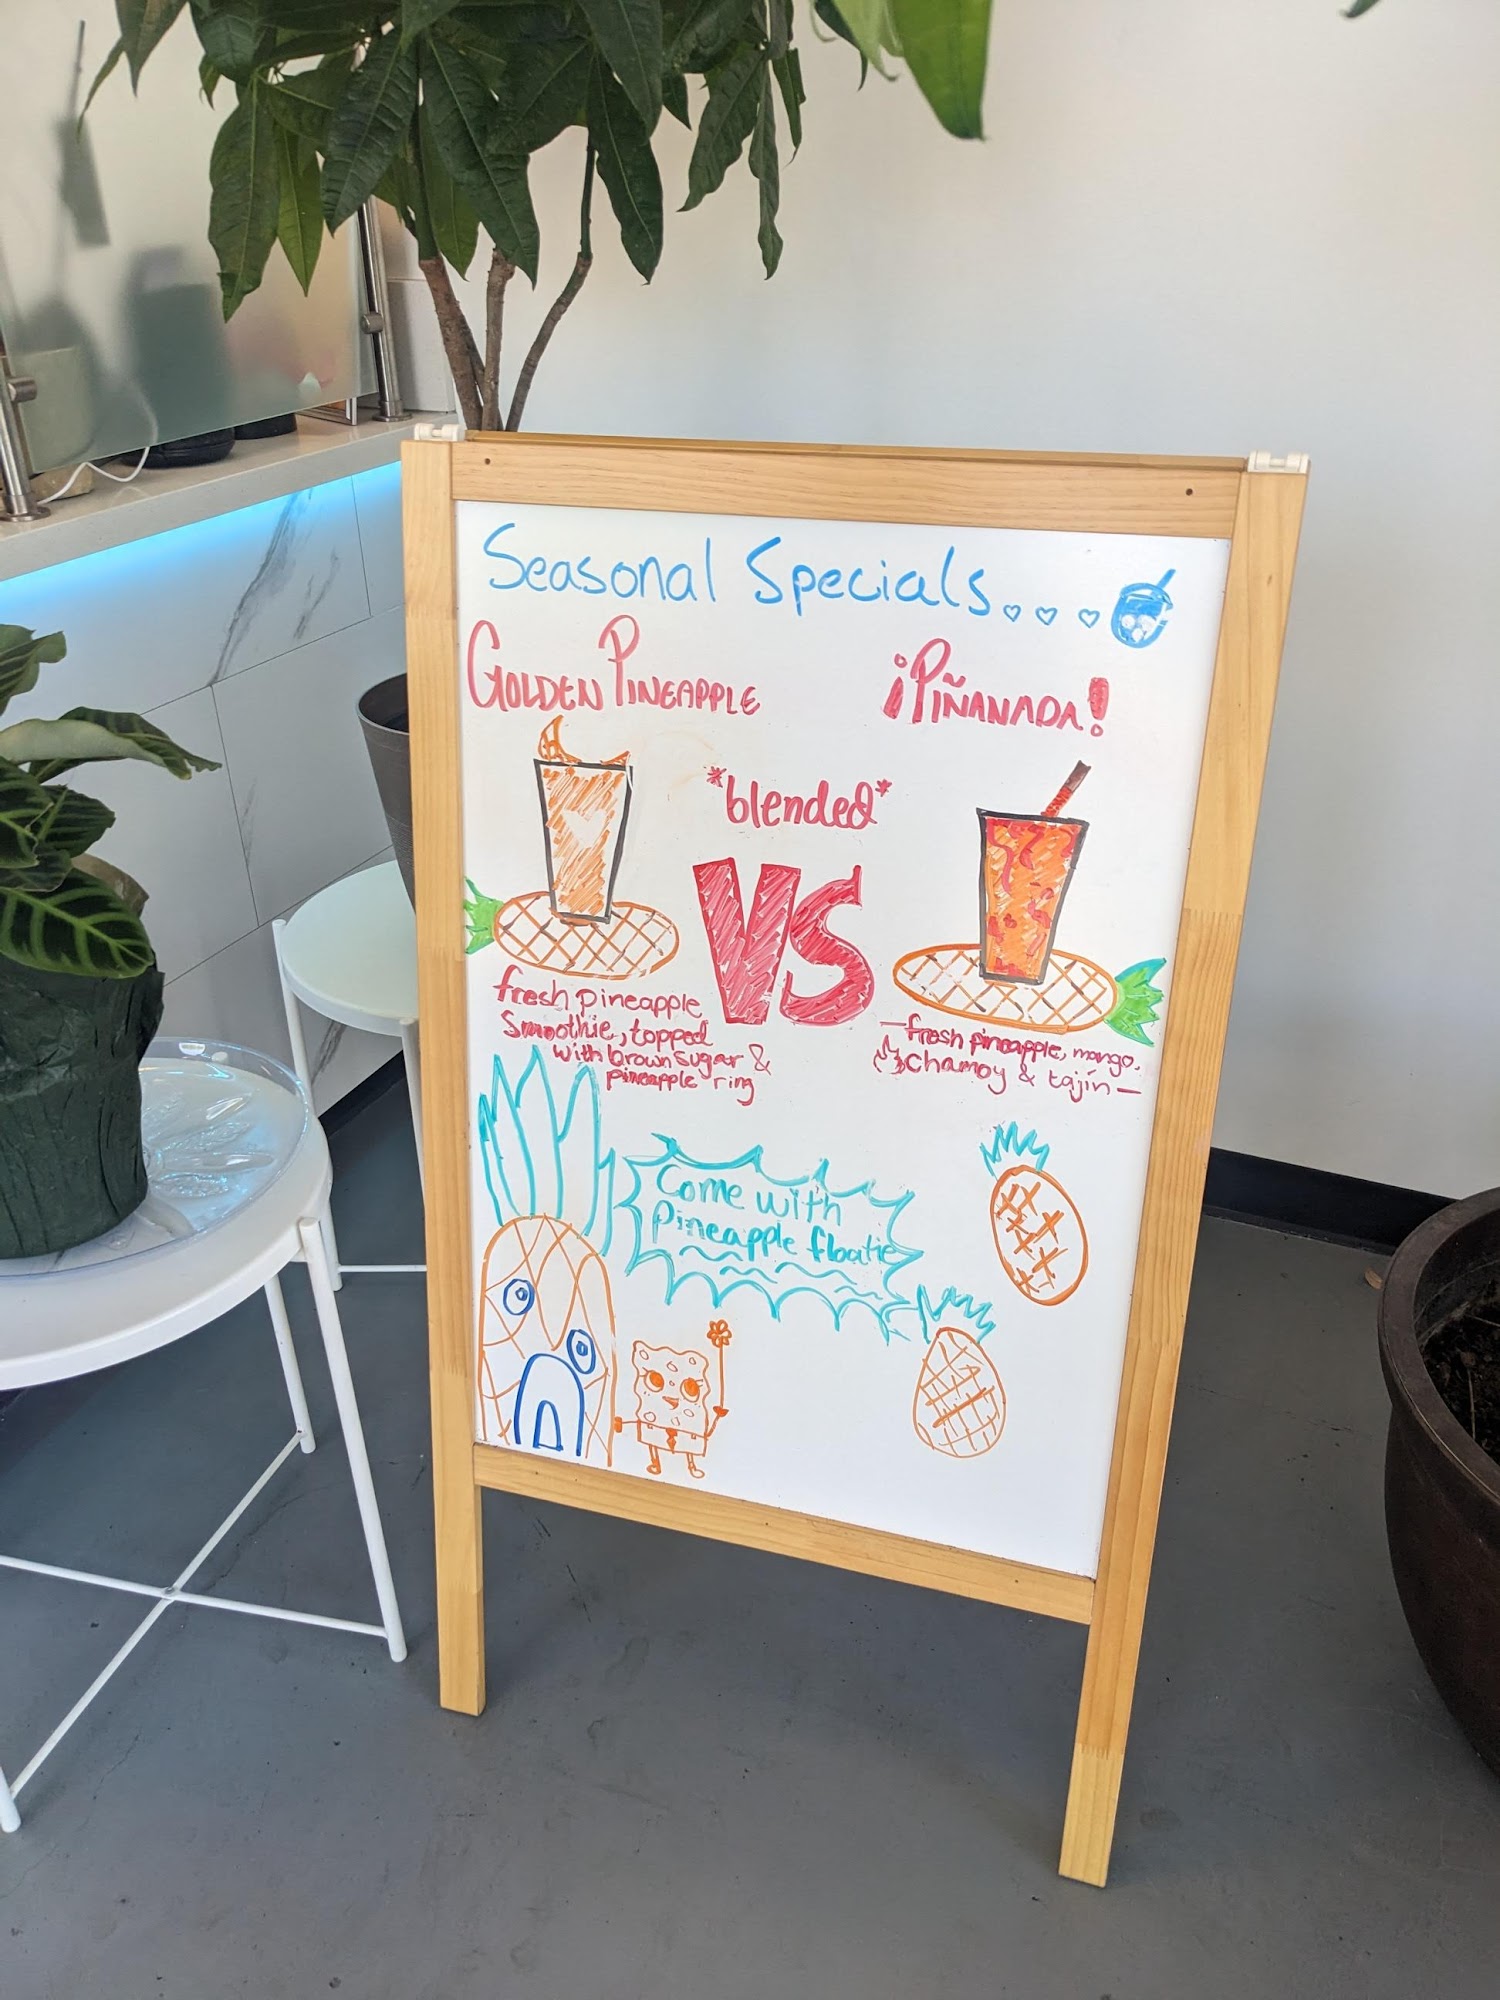 Seasonal Specials...
GOLDEN PINEAPPLE
¡PIÑANADA!
*blended*
VS
fresh pineapple
smoothie, topped
with brown sugar &
pineapple ring
fresh pineapple, mango,
chamoy & tajín
Come with
Pineapple floatie